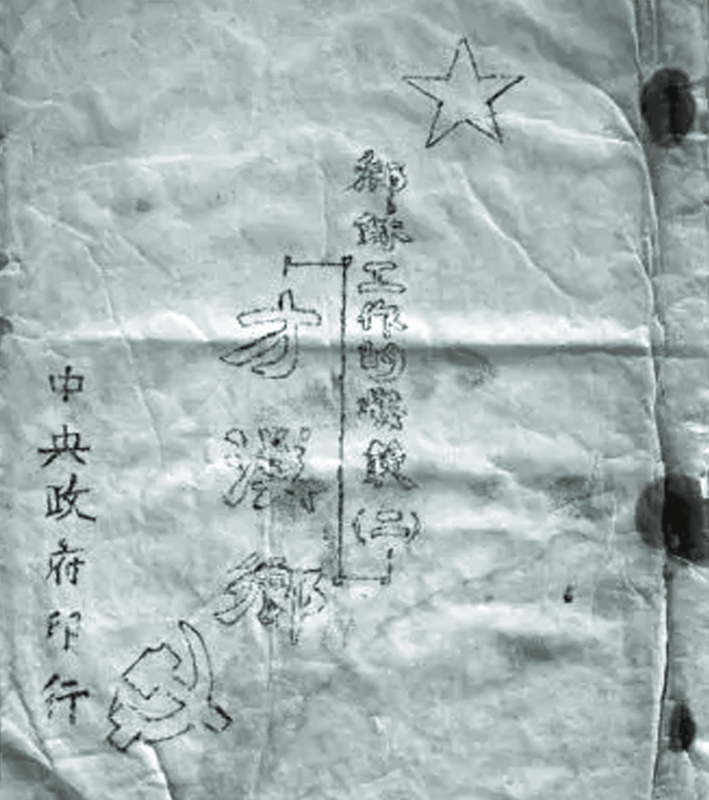 鄉蘇工作的模範(二)
才溪鄉
中央政府印行